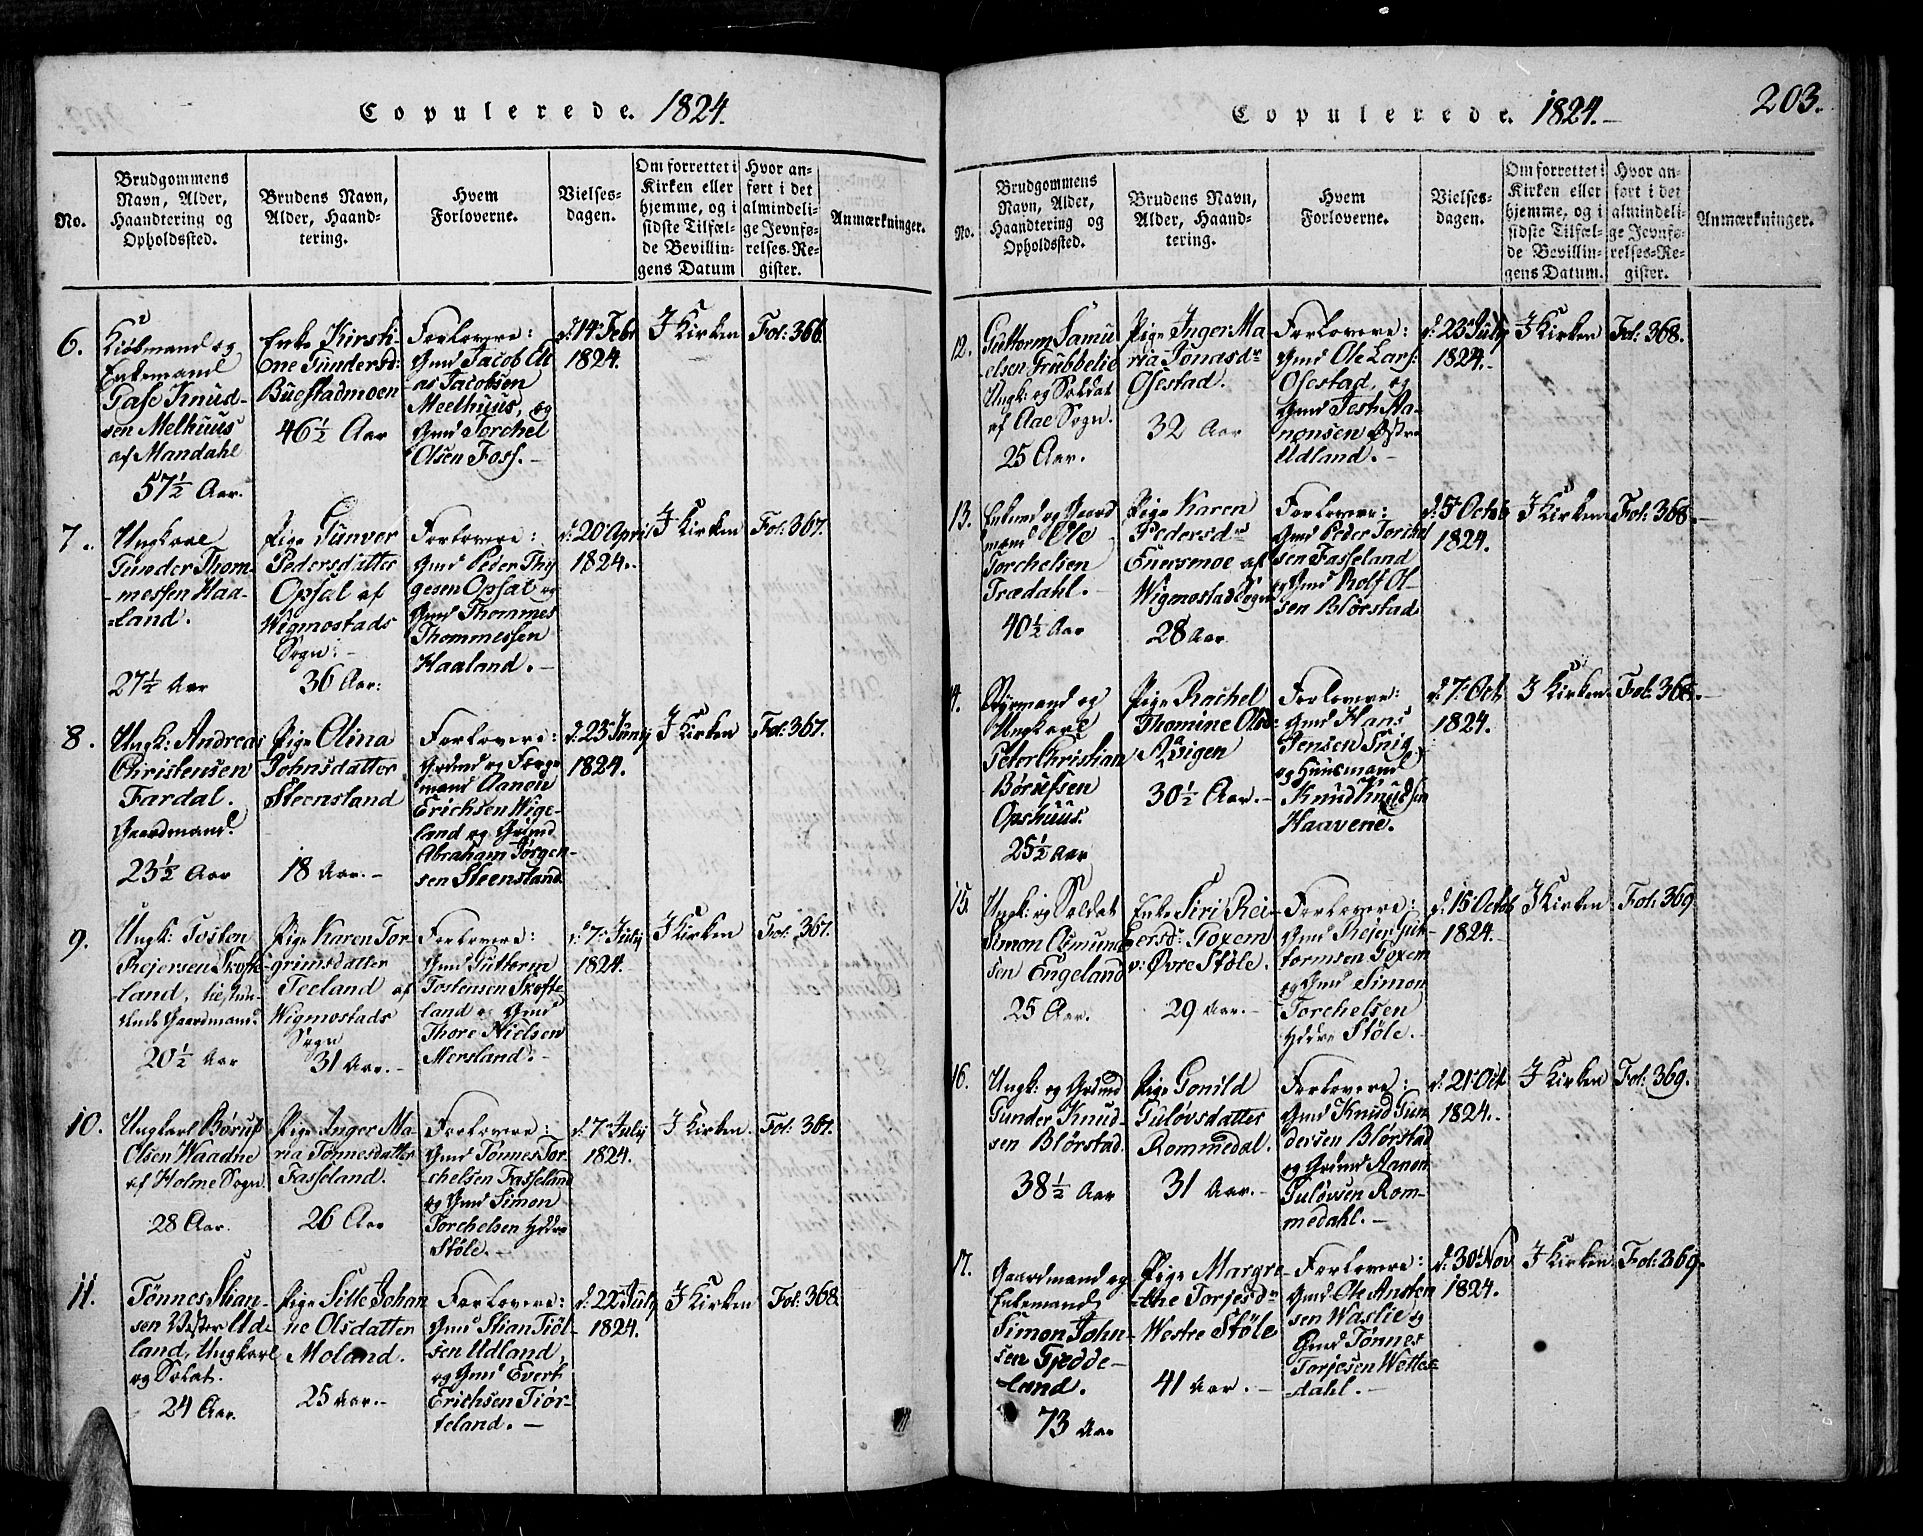 Copulerede. 1824.
No.
Brudgommens
Navn, Alder,
Haandtering og
Opholdssted.
Brudens Navn,
Alder, Haand-
tering.
Hvem
Forloverne.
Vielses-
dagen.
Om forrettet i
Kirken eller
hjemme, og i
sidste Tilfæl-
de Bevillin-
gens Datum
Hvor an-
ført i det
almindeli-
ge Jevnfø-
relses-Re-
gister.
Anmærkninger.
6.
Kiøbmand og
Enkemand
Knud-
sen Melhuus
af Mandahl
57½ Aar.
Enke Kirsti-
ne Gundersd:
Buestadmoen
46½ Aar
Forlovere:
Gmd Jacob Cl-
as Jacobsen
Meelhuus, og
Gmd Torchel
Olsen Foss.-
d: 14: Febr
1824.
I Kirken
Fol: 366.
7.
Ungkarl
Gunder Thom-
messen Haa-
land.
27½ Aar
Pige Gunvor
Pedersdatter
Opsal af
Wigmostads
Sogn:-
36 Aar:
Forlovere:
Gmd Peder Thy-
gesen Opsal og
Gmd Thommes
Thommessen
Haaland.-
d: 20: April
1824.
I Kirken
Fol: 367.
8.
Ungk: Andreas
Christensen
Fardal.
Gaardmand.
23½ Aar
Pige Olina
Johnsdatter
Steensland
18 Aar.-
Forlovere:
mand Aanen
Erichsen Wige-
land og Gmd
Abraham Jørgen-
sen Steensland.
d: 23: Juny
1824.
I Kirken
Fol: 367.
9.
Ungk: Tosten
Rejersen Skofte-
land,
Gaardmand.
20½ Aar
Pige Karen Tor-
grimsdatter
Teeland af
Wigmostads
Sogn
31 Aar.-
Forlovere:
Gmd Guttorm
Tostensen Skofte-
land og Gmd
Thore Nielsen
Mersland.-
d: 7: July
1824.
I Kirken
Fol: 367.
10.
Ungkarl Børuf
Olsen Waadne
af Holme Sogn.
28 Aar.
Pige Inger Ma-
ria Tønnesdatter
Fasseland.
26 Aar
Forlovere:
Gmd Tønnes Tor-
chelsen Fasseland
og Gmd Simon
Torchelsen Yddre
Støle.-
d: 7: July
1824.
I Kirken
Fol: 367.
11.
Tønnes Stian-
sen Vester Ud-
land, Ungkarl
og Soldat.
24 Aar.
Pige Sille Johan
ne Olsdatter
Moland.
25 Aar.-
Forlovere:
Gmd Stian Tiøl-
sen Udland,
og Gmd Evert
Erichsen Tiør-
teland.-
d: 22: July
1824.
I Kirken
Fol: 368.
Copulerede. 1824.-
203.
No.
Brudgommens
Navn, Alder,
Haandtering og
Opholdssted.
Brudens Navn,
Alder, Haand-
tering.
Hvem
Forloverne.
Vielses-
dagen.
Om forrettet i
Kirken eller
hjemme, og i
sidste Tilfæl-
de Bevillin-
gens Datum.
Hvor an-
ført i det
almindeli-
ge Jevnfø-
relses-Re-
gister.
Anmærkninger.
12.
Guttorm Samu-
elsen Grubbelie
Ungk: og Soldat
af Aae Sogn.
25 Aar.
Pige Inger Ma-
ria Jonasdr
Osestad.
32 Aar
Forlovere:
Gmd Ole Lars:
Osestad, og
Gmd Aa-
nonsen Østre
Udland.-
d: 23: July
1824.-
I Kirken
Fol: 368.
13.
Enkemd og Gaard
mand Ole
Torchelsen
Trædahl.
40½ Aar
Pige Karen
Pedersdr
Enersmoe af
Wigmostad Sogn
28 Aar.
Forlovere:
Gmd Peder Torchel
sen Fasseland
og Gmd Rolf Ol-
sen Blørstad
d: 5: Octob
1824.
I Kirken
Fol: 368.-
14.
Styrmand og
Ungkarl
Peter Christian
Børufsen
Opshuus.
25½ Aar
Pige Rachel
Thomine Olsdr
Aavigen
30½ Aar.-
Forlovere:
Gmd Hans
Jensen Snig
og Huusmand
Knud Knudsen
Haavene.
d: 7: Oct
1824.
I Kirken
Fol: 368.-
15.
Ungk: og Soldat
Simon Asmund
sen Engeland
25 Aar.
Enke Siri Rei-
ersdr: Foxem
v: Øvre Støle.
29 Aar.-
Forlovere:
Gmd Rejer Gut-
tormsen Foxem
og Gmd Simon
Torchelsen
Yddre Støle.-
d: 15: Octob
1824.-
I Kirken
Fol: 369
16.
Ungk: og Grund
Gunder Knud-
sen Blørstad.
38½ Aar
Pige Gonild
Guløvsdatter
Rommedal.
31 Aar.-
Forlovere:
Gmd Knud Gun-
dersen Blørstad
og Grund Aanen
Guløvsen Rom-
medahl.-
d: 21: Oct
1824.-
I Kirken
Fol: 369.
17.
Gaardmand og
Enkemand
Simon John-
sen Fjedde-
land.
73 Aar
Pige Margre-
the Torjesdr
Westre Støle
41 Aar.-
Forlovere:
Gmd Ole Ansten
sen Waslie og
Gmd Tønnes
Torjesen Wette-
dahl.-
d: 30: Nov
1824.
I Kirken
Fol: 369.